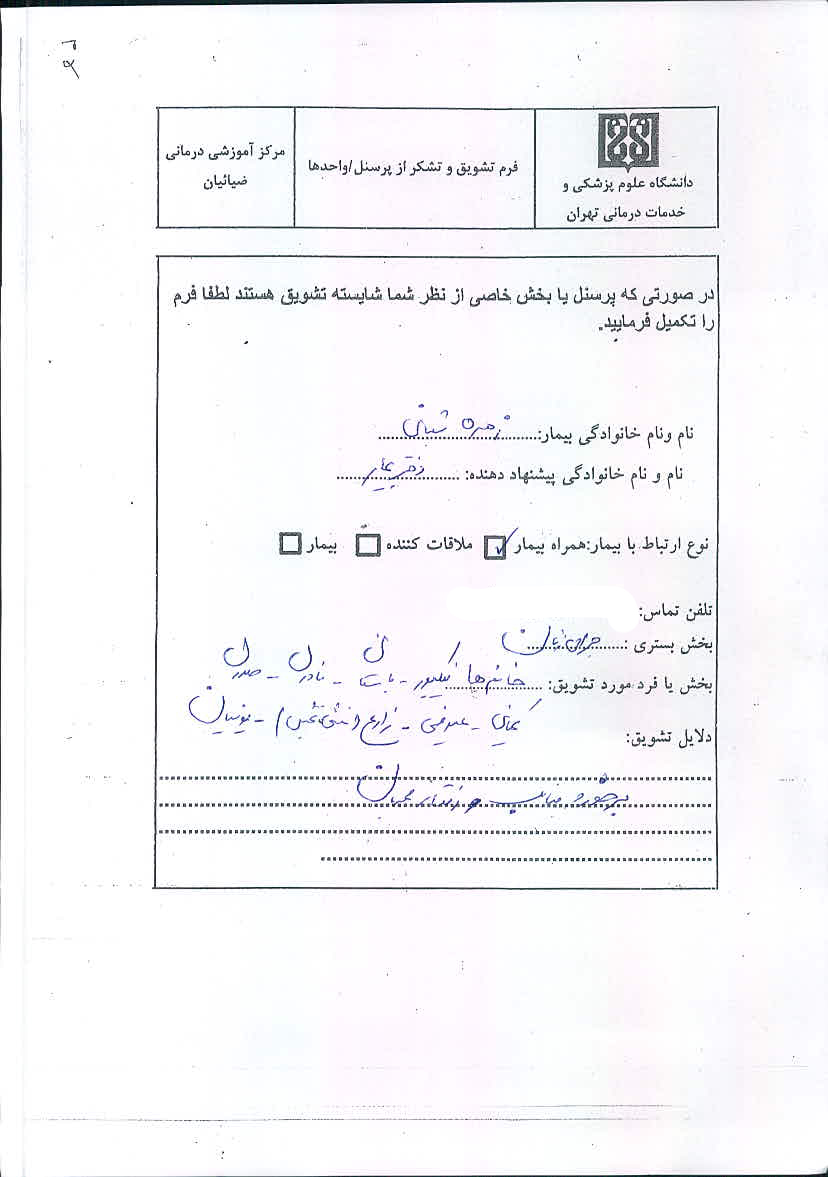 دانشگاه علوم پزشکی و
خدمات درمانی تهران
فرم تشویق و تشکر از پرسنل/واحدها
مرکز آموزشی درمانی
ضیائیان
در صورتی که پرسنل یا بخش خاصی از نظر شما شایسته تشویق هستند لطفا فرم
را تکمیل فرمایید.
نام ونام خانوادگی بیمار: زهره
نام و نام خانوادگی پیشنهاد دهنده: دختر بیمار
نوع ارتباط با بیمار:همراه بیمار ملاقات کننده بیمار
تلفن تماس:
بخش بستری : جراحی زنان
بخش یا فرد مورد تشویق: خانم ها نیکپور - - نادری - صدری
دلایل تشویق:
برخورد مناسب و رفتار مهربان